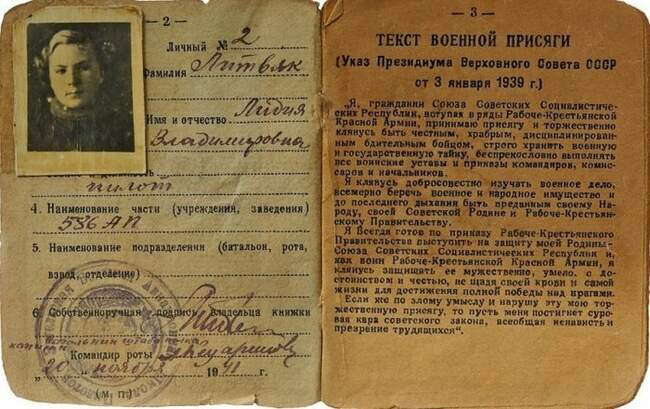 — 2 —
Личный № 2
Фамилия Литвяк
Имя и отчество Лидия
Владимировна
пилот
4. Наименование части (учреждения, заведения)
586 АП
5. Наименование подразделения (батальон, рота,
взвод, отделение)
6. Собственноручная подпись владельца книжки
Командир роты
" 20 " ноября 1941
(м. п.)
— 3 —
ТЕКСТ ВОЕННОЙ ПРИСЯГИ
(Указ Президиума Верховного Совета СССР
от 3 января 1939 г.)
„Я, гражданин Союза Советских Социалистических
Республик, вступая в ряды Рабоче-Крестьянской
Красной Армии, принимаю присягу и торжественно
клянусь быть честным, храбрым, дисциплинирован-
ным бдительным бойцом, строго хранить военную
и государственную тайну, беспрекословно выполнять
все воинские уставы и приказы командиров, комис-
саров и начальников.
Я клянусь добросовестно изучать военное дело,
всемерно беречь военное и народное имущество и
до последнего дыхания быть преданным своему На-
роду, своей Советской Родине и Рабоче-Крестьян-
скому Правительству.
Я всегда готов по приказу Рабоче-Крестьянского
Правительства выступить на защиту моей Родины—
Союза Советских Социалистических Республик и,
как воин Рабоче-Крестьянской Красной Армии, я
клянусь защищать ее мужественно, умело, с до-
стоинством и честью, не щадя своей крови и самой
жизни для достижения полной победы над врагами.
Если же по злому умыслу я нарушу эту мою тор-
жественную присягу, то пусть меня постигнет суро-
вая кара советского закона, всеобщая ненависть и
презрение трудящихся“.